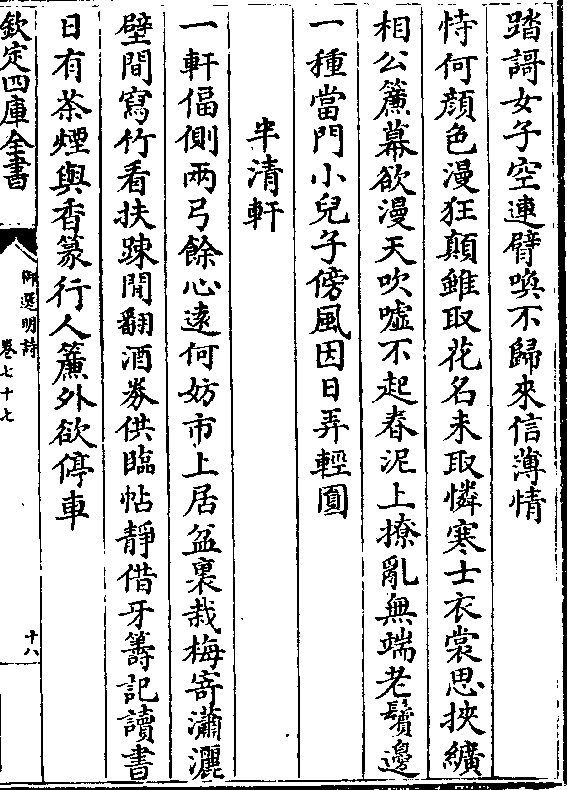 踏謌女子空連臂喚不歸來信薄情
恃何顔色漫狂顛雖取花名未取憐寒士衣裳思挾纊
相公簾幕欲漫天吹噓不起春泥上撩亂無端老鬢邊
一種當門小兒子傍風因日弄輕圓
半清軒
一軒偪側兩弓餘心遠何妨市上居盆裏栽梅寄瀟灑
壁間寫竹看扶踈閒翻酒券供臨帖靜借牙籌記讀書
日有茶煙與香篆行人簾外欲停車
欽定四庫全書
御選明詩
卷七十七
十八